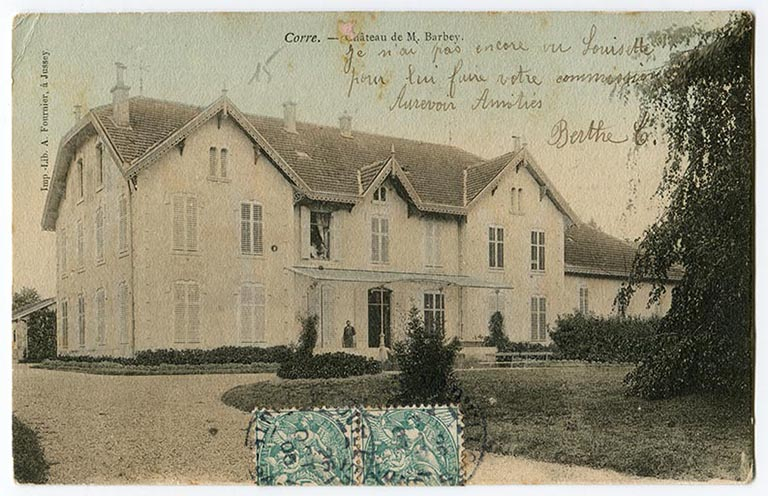 Corre. — Château de M. Barbey.
Je n'ai pas encore vu Louisette
pour lui faire votre commission
Aurevoir Amitiés
Berthe C.
15
Imp.-Lib. A. Fournier, à Jussey